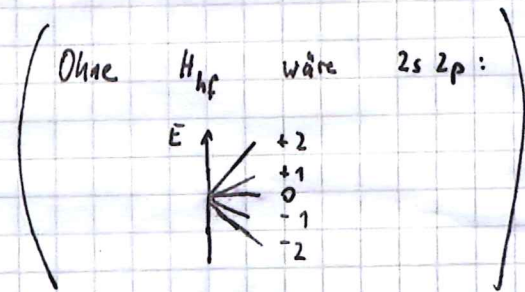 Ohne H_hf wäre 2s 2p:
E
+2
+1
0
-1
-2